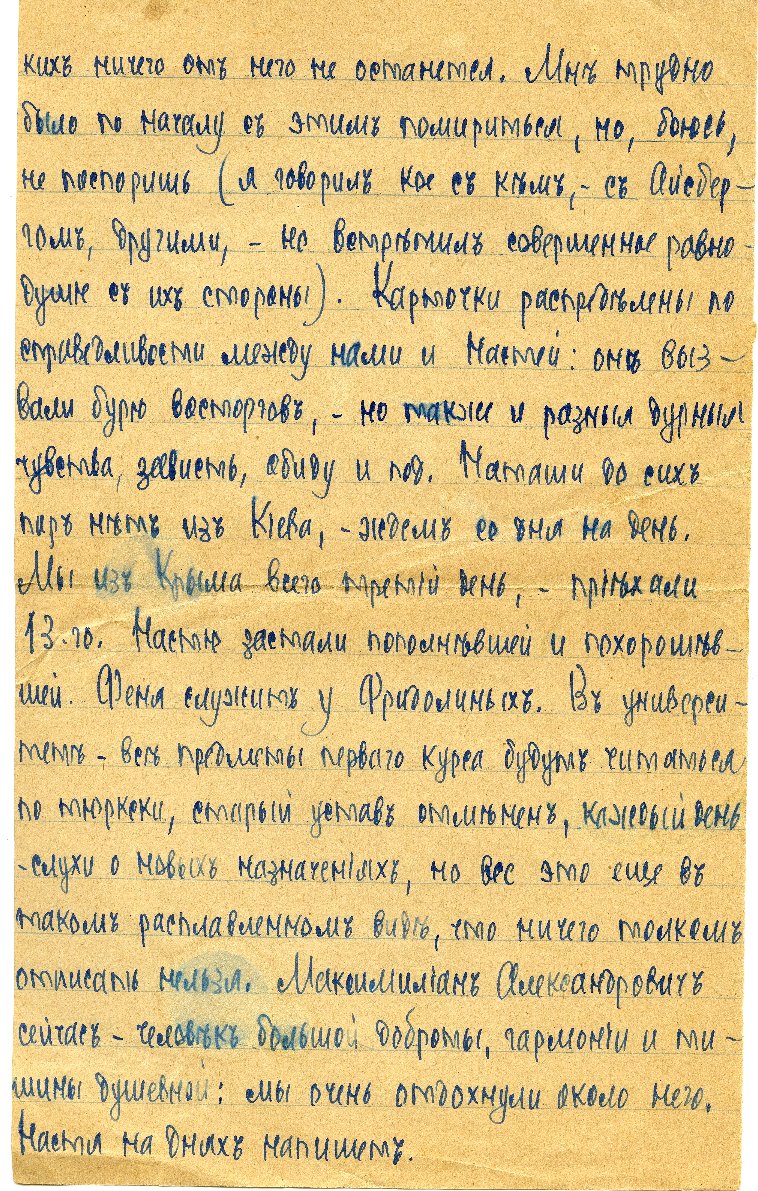 кихъ ничего отъ него не останется. Мнѣ трудно
было по началу съ этимъ помириться, но, боюсь,
не поспоришь (я говорилъ кое съ кѣмъ, - съ Айсбер-
гомъ, другими, - но встрѣтилъ совершенное равно-
душіе съ ихъ стороны). Карточки распредѣлены по
справедливости между нами и Настей: онѣ выз-
вали бурю восторговъ, - но также и разныя дурныя
чувства, зависть, обиду и под. Наташи до сихъ
поръ нѣтъ изъ Кіева, - ждемъ ее дня на день.
Мы изъ Крыма всего третій день, - пріѣхали
13-го. Настю застали пополнѣвшей и похорошѣв-
шей. Феня служитъ у Фридолиныхъ. Въ универси-
тетѣ - всѣ предметы перваго курса будутъ читаться
по тюркски, старый уставъ отмѣненъ, каждый день
- слухи о новыхъ назначеніяхъ, но все это еще въ
такомъ расплавленномъ видѣ, что ничего толкомъ
отписать нельзя. Максимиліанъ Александровичъ
сейчасъ - человѣкъ большой доброты, гармоніи и ти-
шины душевной: мы очень отдохнули около него.
Настя на дняхъ напишетъ.